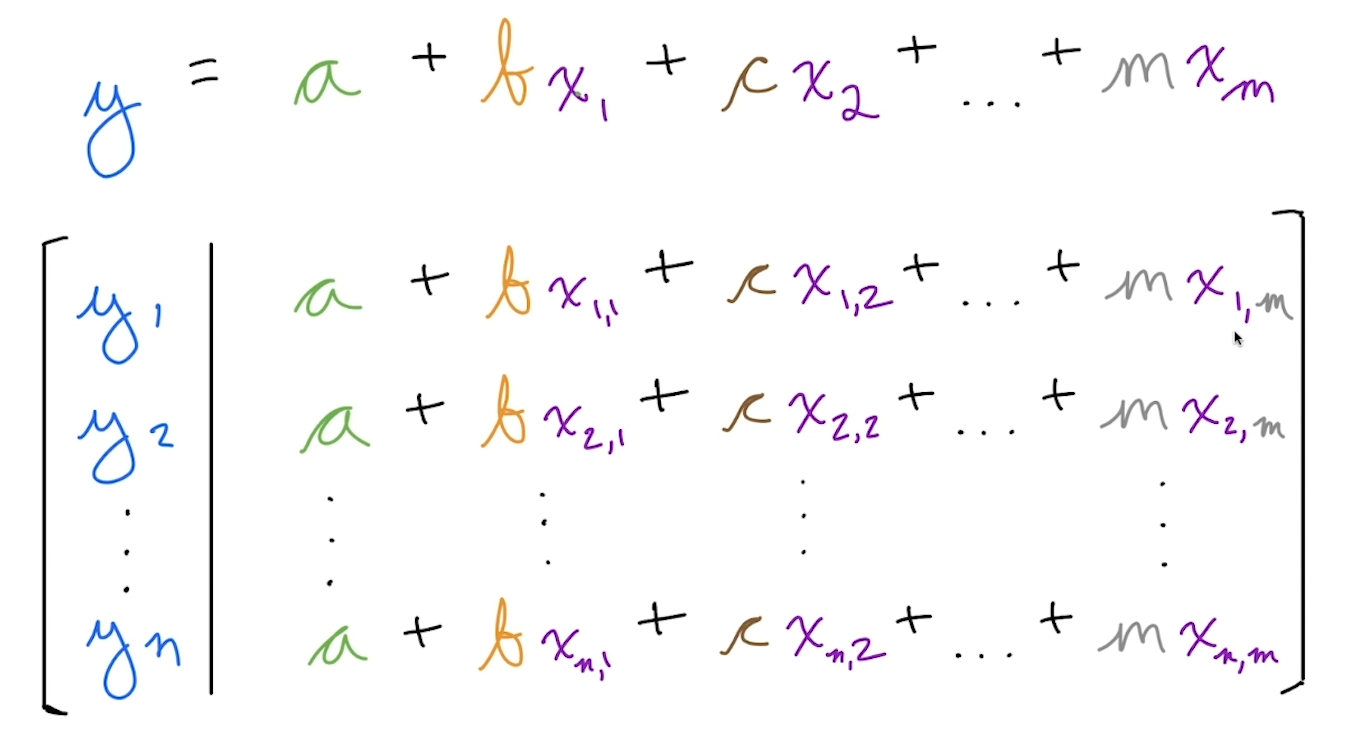 y = a + b x₁ + c x₂ + ... + m xₘ
y₁ | a + b x₁,₁ + c x₁,₂ + ... + m x₁,ₘ
y₂ | a + b x₂,₁ + c x₂,₂ + ... + m x₂,ₘ
⋮ ⋮ ⋮ ⋮ ⋮
yₙ | a + b xₙ,₁ + c xₙ,₂ + ... + m xₙ,ₘ